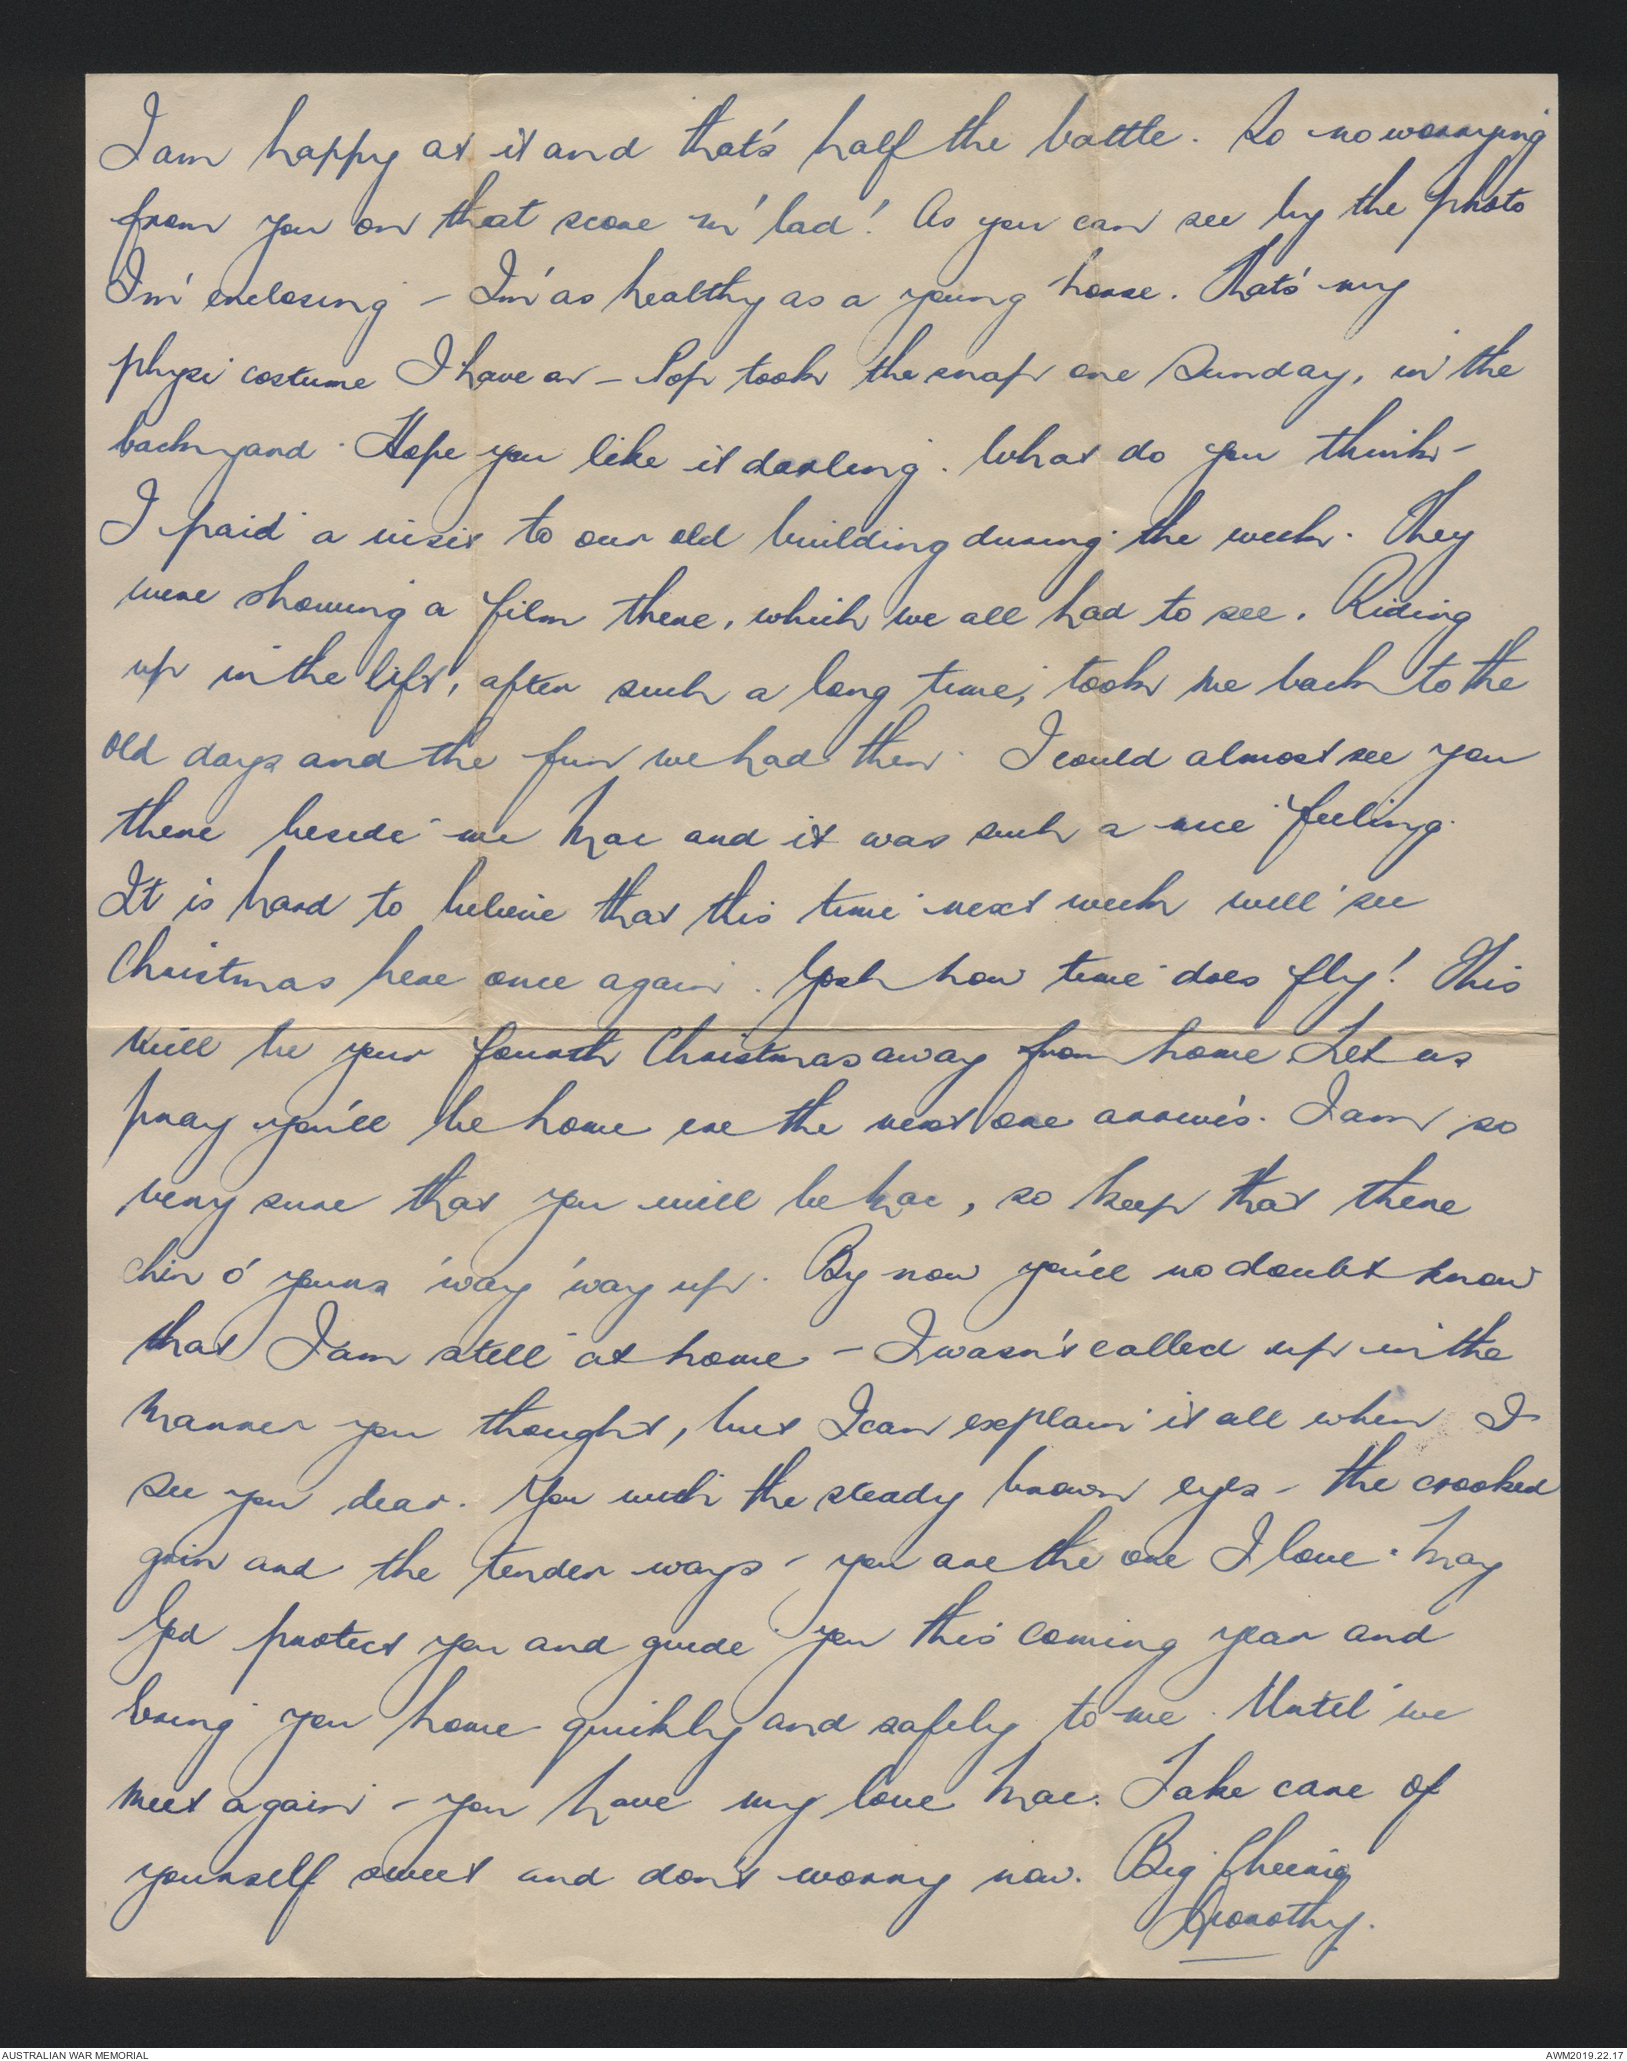 I am happy at it and that's half the battle. So no worrying
from you on that score m' lad! As you can see by the photo
I'm enclosing – I'm as healthy as a young horse. That's my
physi costume I have on – Pop took the snap one Sunday, in the
backyard. Hope you like it darling. What do you think –
I paid a visit to our old building during the week. They
were showing a film there, which we all had to see. Riding
up in the lift, after such a long time, took me back to the
old days and the fun we had then. I could almost see you
there beside me Mac and it was such a nice feeling.
It is hard to believe that this time next week will see
Christmas here once again. Gosh how time does fly! This
will be your fourth Christmas away from home Let us
pray you'll be home ere the next one arrives. I am so
very sure that you will be Mac, so keep that there
chin o' yours 'way 'way up. By now you'll no doubt know
that I am still at home – I wasn't called up in the
manner you thought, but I can explain it all when I
see you dear. You with the steady brown eyes – the crooked
grin and the tender ways – you are the one I love. May
God protect you and guide you this coming year and
bring you home quickly and safely to me. Until we
meet again – you have my love Mac. Take care of
yourself sweet and don't worry now. Big Cheerio
Dorothy.
AUSTRALIAN WAR MEMORIAL
AWM2019.22.17